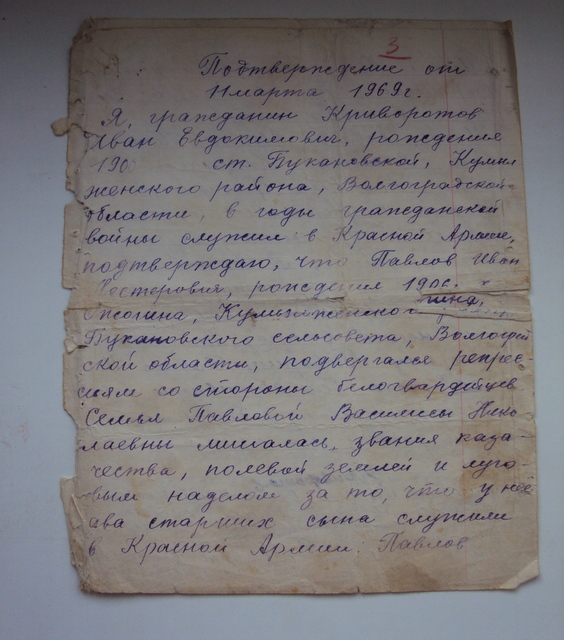 3
Подтверждение от
11 марта 1969г.
Я, гражданин Криворотов
Иван Евдокимович, рождения
190 ст. Букановской, Кумыл
женского района, Волгоградской
области, в годы гражданской
войны служил в Красной Армии,
подтверждаю, что Павлов Иван
Нестерович, рождения 190
Кумылженского
Букановского сельсовета, Волгоград
ской области, подвергался репрес
сиям со стороны белогвардейцев
Семья Павловой Василисы Нико
лаевны лишалась звания каза-
чества, полевой землей и луго-
вым наделом за то, что у неё
два старших сына служили
в Красной Армии. Павлов